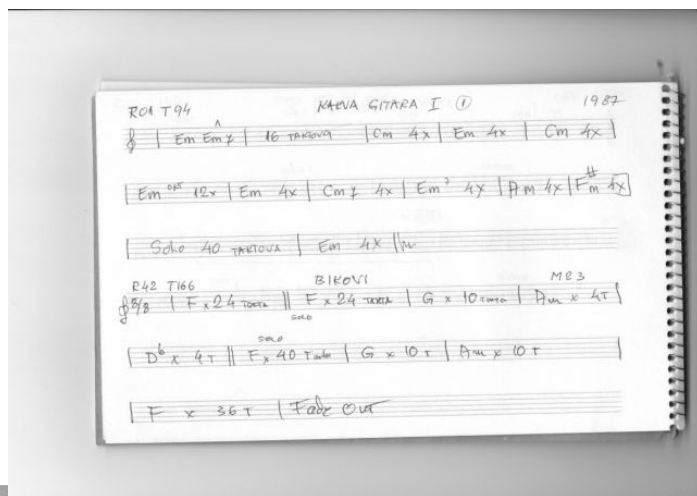 R01 T94 KALVA GITARA I ① 1987
| Em Em 7 | 16 TAKTOVA | Cm 4x | Em 4x | Cm 4x |
| Em 12x | Em 4x | Cm 7 4x | Em 7 4x | Am 4x | F#m 4x |
| SOLO 40 TAKTOVA | Em 4x ||
R42 T166 BIKOVI M23
| F x 24 TAKTA || F x 24 TAKTA | G x 10 TAKTA | Am x 4T |
SOLO
SOLO
| Db x 4T || F x 40 Takta | G x 10 T | Am x 10 T |
| F x 36 T | Fade Out